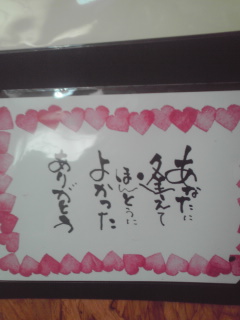 あなたに
逢えて
ほんとうに
よかった
ありがとう